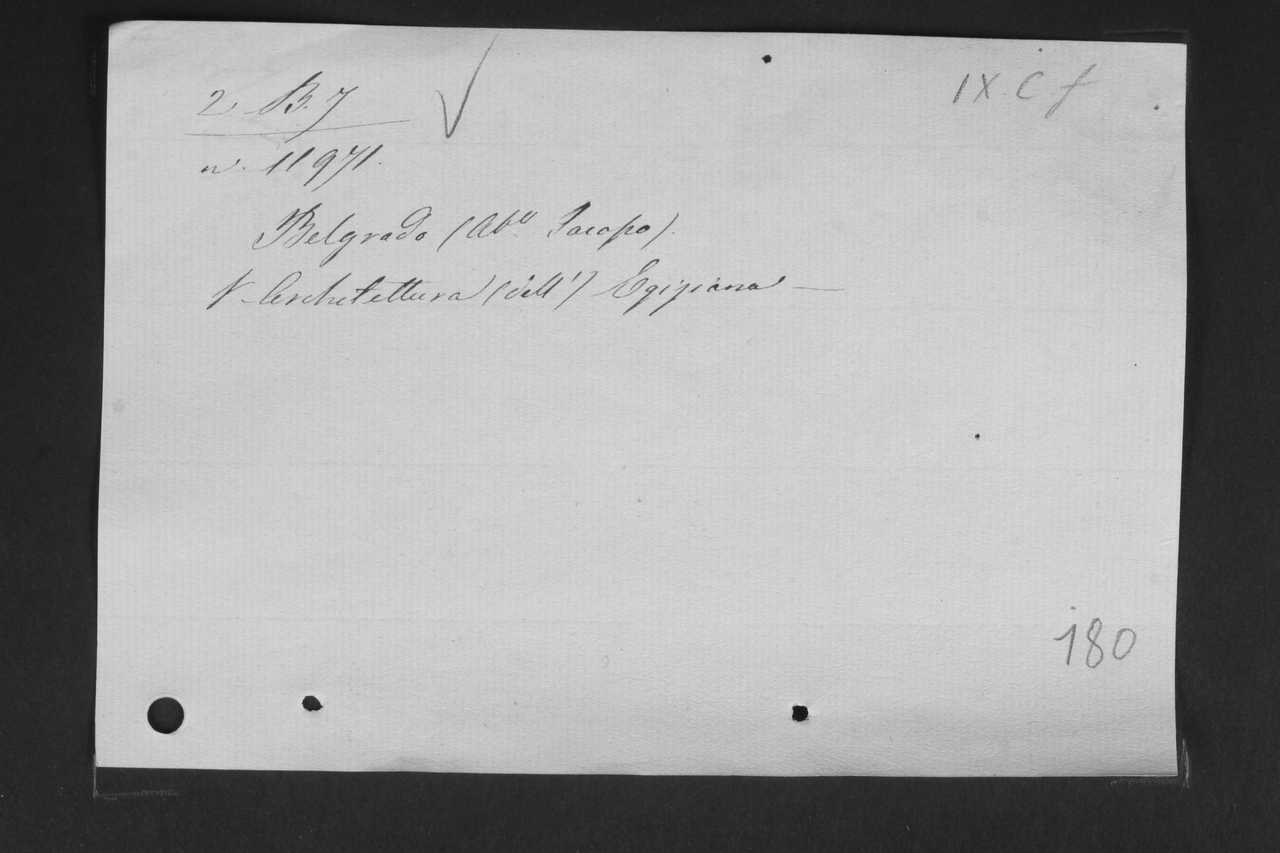 2 B. 7
IX. C f
n. 11971.
Belgrado (Ab.e Jacopo).
V. Architettura (dell') Egiziana —
180